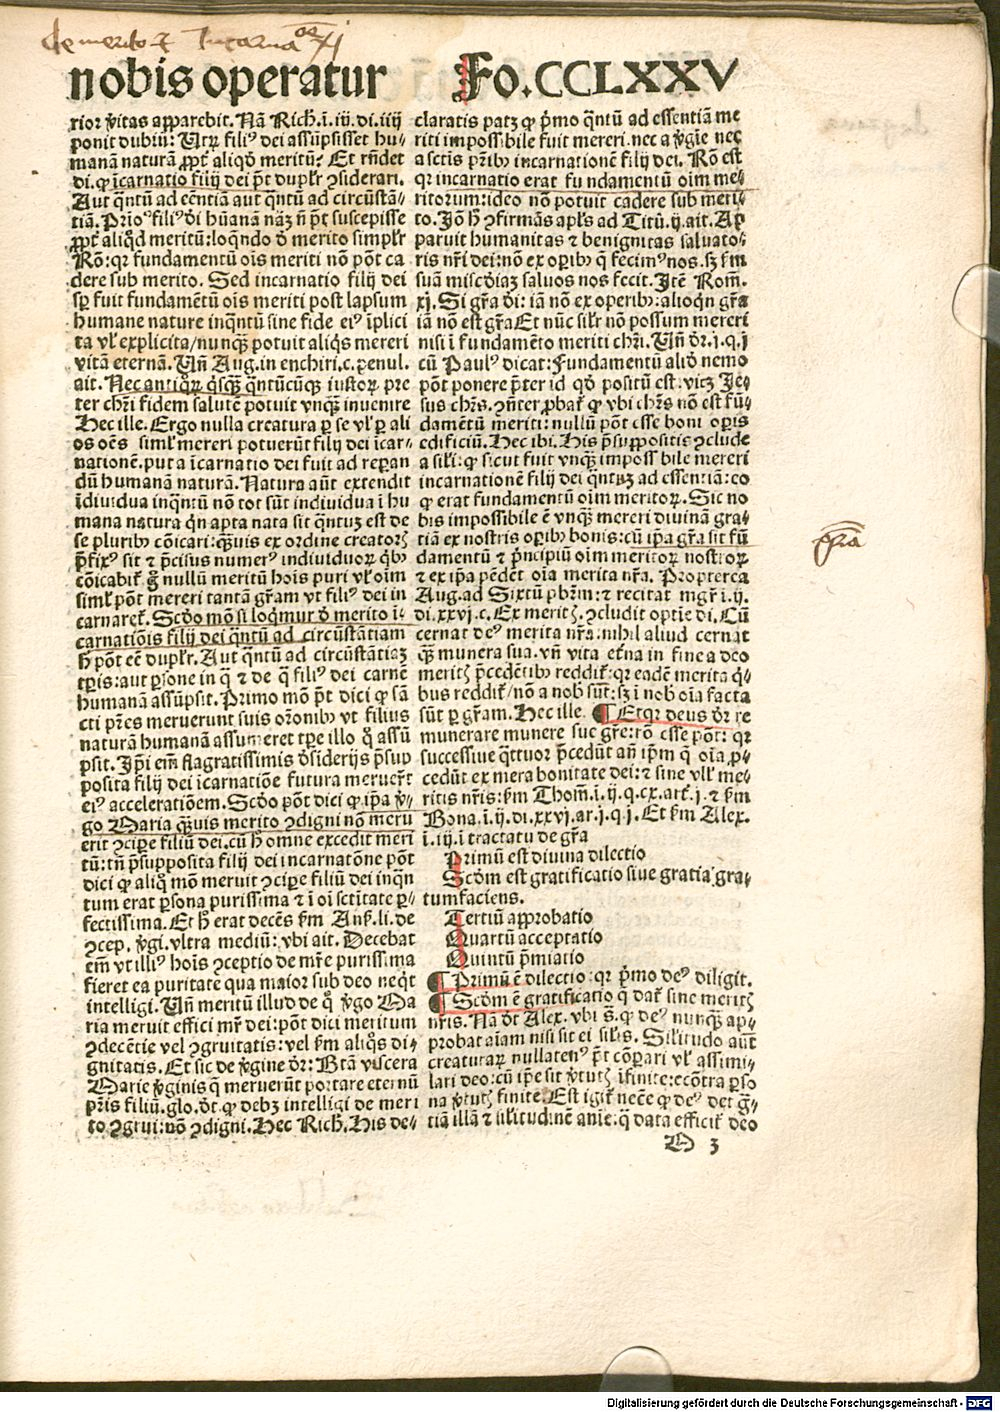 de merito et Incarnaoīs xi
nobis operatur Fo.CCLXXV
rior v̄itas apparebit. Nā Rich. ī. iij. di. iiij
ponit dubiū: Utꝝ filiꝰ dei assūpsisset hu⸗
manā naturā ꝓpt̄ aliqḋ meritū? Et rn̄det
di. ꝙ īcarnatio filij dei pōt duplr̄ ꝯsiderari.
Aut qn̄tū ad eēntiā aut qn̄tū ad circūstā⸗
tiā. Prioꝰ filiꝰ d̄i hūanā nāꝫ n̄ pōt suscepisse
ꝓpt̄ aliqḋ meritū: loqn̄do d̄ merito simplr̄
Rō: qꝛ fundamentū oīs meriti nō pōt ca
dere sub merito. Sed incarnatio filij dei
sꝑ fuit fundamētū oīs meriti post lapsum
humane nature inqn̄tū sine fide eiꝰ īplici
ta vl̄ explicita/nunqꝫ potuit aliqs mereri
vitā eternā. Un̄ Aug. in enchiri. c. penul.
ait. Nec antiqꝝ qsqꝫ qn̄tūcūqꝫ iustoꝝ pre
ter chr̄i fidem salutē potuit vnqꝫ inuenire
Hec ille. Ergo nulla creatura ꝑ se vl̄ ꝑ ali
os oēs siml̄ mereri potuerūt filij dei īcar⸗
nationē. puta īcarnatio dei fuit ad reꝑan
dū humanā naturā. Natura aūt extendit
īdiuidua inqn̄tū nō tot sūt indiuidua ī hu
mana natura qn̄ apta nata sit qn̄tuꝫ est de
se pluribꝰ cōicari: qꝫuis ex ordine creatorꝭ
p̄fixꝰ sit ⁊ p̄cisus numerꝰ indiuiduoꝝ qbꝰ
cōicabit̄. gͦ nullū meritū hoīs puri vl̄ oīm
siml̄ pōt mereri tantā gr̄am vt filiꝰ dei in
carnaret̄. Scd̄o mō si loqmur d̄ merito ī⸗
carnatiōis filij dei qn̄tū ad circūstātiam
h̄ pōt eē duplr̄. Aut qn̄tū ad circūstātiaꝫ
tꝑis: aut ꝑsone in q̄ ⁊ de q̄ filiꝰ dei carnē
humanā assūpsit. Primo mō pōt dici ꝙ sā
cti pr̄es meruerunt suis or̄onibꝰ vt filius
naturā humanā assumeret tꝑe illo qͦ assū
psit. Ip̄i em̄ flagratissimis d̄siderijs p̄sup
posita filij dei īcarnatiōe futura meruerūt
eiꝰ acceleratiōem. Scd̄o pōt dici ꝙ ip̄a v̄⸗
go Maria qꝫuis merito ꝯdigni nō meru
erit ꝯcipe filiū dei. cū h̄ omne excedit meri
tū: tn̄ p̄supposita filij dei incarnatōne pōt
dici ꝙ aliq̄ mō meruit ꝯciꝑe filiū dei inqn̄
tum erat ꝑsona purissima ⁊ ī oī sctītate ꝑ⸗
fectissima. Et h̄ erat decēs km̄ Ansl̄. li. de
ꝯcep. v̄gi. vltra mediū: vbi ait. Decebat
em̄ vt illiꝰ hoīs ꝯceptio de mr̄e purissima
fieret ea puritate qua maior sub deo neqt
intelligi. Un̄ meritū illud de qͦ v̄go Ma
ria meruit effici mr̄ dei: pōt dici meritum
ꝯdecētie vel ꝯgruitatis: vel km̄ aliqs di⸗
gnitatis. Et sic de v̄gine dr̄: Btā viscera
Marie v̄ginis q̄ meruerūt portare eternū
pr̄is filiū. glo. dt̄ ꝙ debꝫ intelligi de meri
to ꝯgrui: nō ꝯdigni. Hec Rich. His de⸗
claratis patꝫ ꝙ p̄mo qn̄tū ad essentiā me
riti impossibile fuit mereri. nec a v̄gīe nec
a sctis pr̄ibꝰ incarnationē filij dei. Rō est
qꝛ incarnatio erat fundamentū oīm me⸗
ritorum: ideo nō potuit cadere sub meri⸗
to. Jō h̄ ꝯfirmās apl̄s ad Titū. ij. ait. Ap
paruit humanitas ⁊ benignitas saluato⸗
ris nr̄i dei: nō ex oꝑibꝰ q̄ fecimꝰ nos. sꝫ km̄
suā misc̄diaꝫ saluos nos fecit. Itē Rom̄.
xj. Si gr̄a d̄i: iā nō ex operibꝰ: alioqn̄ gr̄a
iā nō est gr̄a Et nūc silr̄ nō possum mereri
nisi ī fundamēto meriti chr̄i. Un̄ dr̄. j. q. j
cū Paulꝰ dicat: Fundamentū aliḋ nemo
pōt ponere p̄ter id qḋ positū est. vitꝫ Jē⸗
sus chr̄s. ꝯn̄ter ꝓbat̄ ꝙ vbi chr̄s nō est fū⸗
damētū meriti: nullū pōt esse boni oꝑis
edificiū. Hec ibi. His p̄suppositis ꝯclude
a sil̄i: ꝙ sicut fuit vnqꝫ impossibile mereri
incarnationē filij dei qn̄tuꝫ ad essentiā: eo
ꝙ erat fundamentū oīm meritoꝝ. Sic no
bis impossibile ē vnqꝫ mereri diuinā gra⸗
tiā ex nostris oꝑibꝰ bonis: cū ip̄a gr̄a sit fū
damentū ⁊ p̄ncipiū oīm meritoꝝ nostroꝝ
⁊ ex ip̄a pēdēt oīa merita nr̄a. Propterea
Aug. ad Sixtū pbr̄m: ⁊ recitat mgr̄ ī. ij.
di. xxvj. c. Ex meritꝭ. ꝯcludit optīe di. Cū
cernat deꝰ merita nr̄a: nihil aliud cernat
qꝫ munera sua. vn̄ vita et̄na in fine a deo
meritꝭ p̄cedētibꝰ reddit̄: qꝛ eadē merita q⸗
bus reddit̄/nō a nob̄ sūt: sꝫ ī nob̄ oīa facta
sūt ꝑ gr̄am. Hec ille. Et qꝛ deus dr̄ re
munerare munere sue gr̄e: rō esse pōt: qꝛ
successiue qttuor p̄cedūt an̄ ip̄m q̄ oīa ꝓ⸗
cedūt ex mera bonitate dei: ⁊ sine vll̄ me⸗
ritis nr̄is: km̄ Thom̄. ī. ij. q. cx. art̄. j. ⁊ km̄
Bona. ī. ij. di. xxvj. ar. j. q. j. Et km̄ Alex.
ī. iij. ī tractatu de gr̄a
Primū est diuina dilectio
Scd̄m est gratificatio siue gratia gra⸗
tumfaciens.
Tertiū approbatio
Quartū acceptatio
Quintū p̄miatio
Primū ē dilectio: qꝛ p̄mo deꝰ diligit.
Scd̄m ē gratificatio q̄ dat̄ sine meritꝭ
nr̄is. Nā dt̄ Alex. vbi s̄. ꝙ deꝰ nunqꝫ ap⸗
probat aīam nisi sit ei sil̄is. Sil̄itudo aūt
creaturaꝝ nullatenꝰ pōt cōꝑari vl̄ assimi⸗
lari deo: cū ip̄e sit v̄tutꝭ īfinite: ecōtra ꝑso
na v̄tutꝭ finite. Est igit̄ necē ꝙ deꝰ det gr̄⸗
tiā illā ⁊ sil̄itudinē aīe. q̄ data efficit̄ deo
O 3
gr̄a
Digitalisierung gefördert durch die Deutsche Forschungsgemeinschaft - DFG